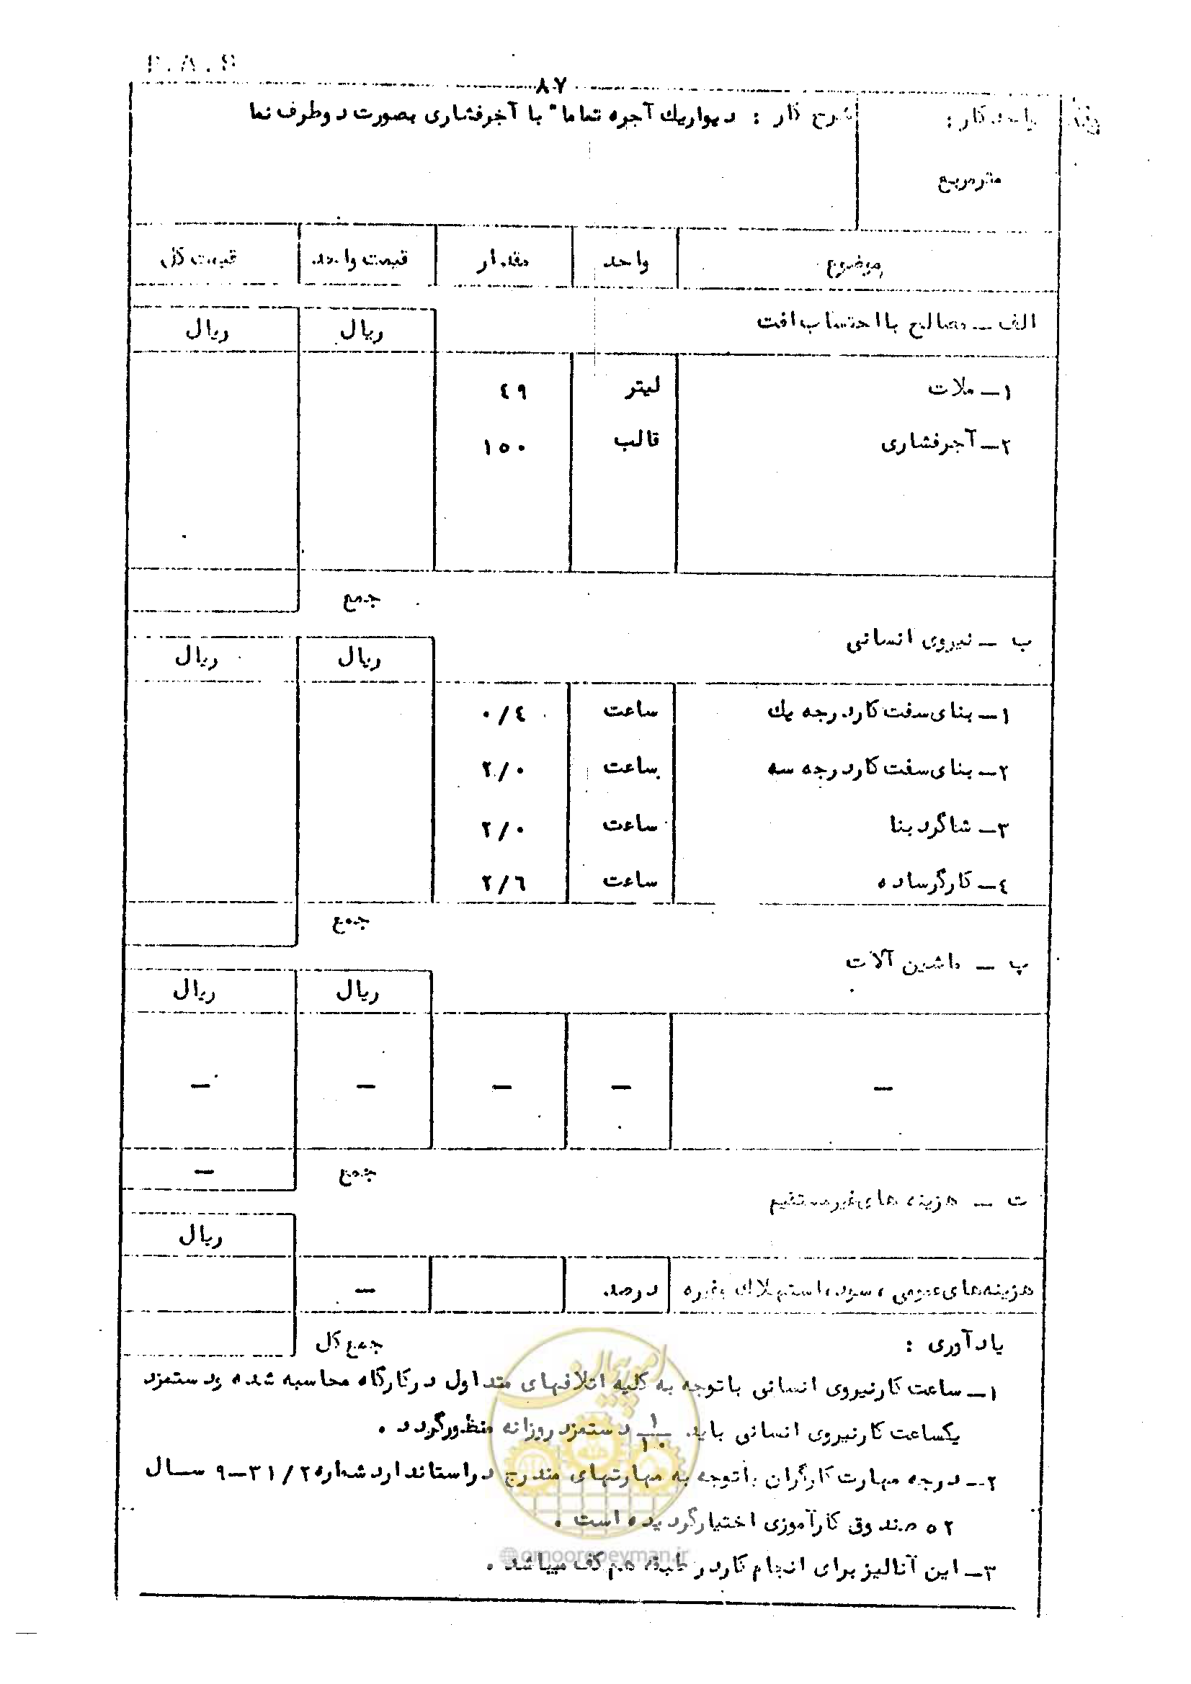 P.A.S
۸۷
واحد کار : شرح کار : دیوار یك آجره تماما" با آجرفشاری بصورت دوطرف نما
مترمربع
موضوع واحد مقدار قیمت واحد قیمت کل
الف ـ مصالح با احتساب افت ریال ریال
۱ـ ملات لیتر ٤۹
۲ـ آجرفشاری قالب ۱۵۰
جمع
ب ـ نیروی انسانی
ریال ریال
۱ـ بنای سفت کار درجه یك ساعت ۰/٤
۲ـ بنای سفت کار درجه سه ساعت ۲/۰
۳ـ شاگرد بنا ساعت ۲/۰
٤ـ کارگر ساده ساعت ۲/٦
جمع
پ ـ ماشین آلات
ریال ریال
ـ ـ ـ ـ ـ
جمع ـ
ت ـ هزینه های غیرمستقیم
ریال
هزینه های عمومی ، سود ، استهلاك وغیره درصد ـ
یادآوری : جمع کل
۱ـ ساعت کار نیروی انسانی با توجه به کلیه اتلافهای متداول درکارگاه محاسبه شده ودستمزد
یکساعت کار نیروی انسانی باید ۱/۱۰ دستمزد روزانه منظور گردد .
۲ـ درجه مهارت کارگران باتوجه به مهارتهای مندرج در استاندارد شماره ۲/۳۱ـ۹ سال
۵۲ صندوق کارآموزی اختیار گردیده است .
۳ـ این آنالیز برای انجام کار در طبقه هم کف میباشد .
امور پیمان
@omoorepeyman.ir